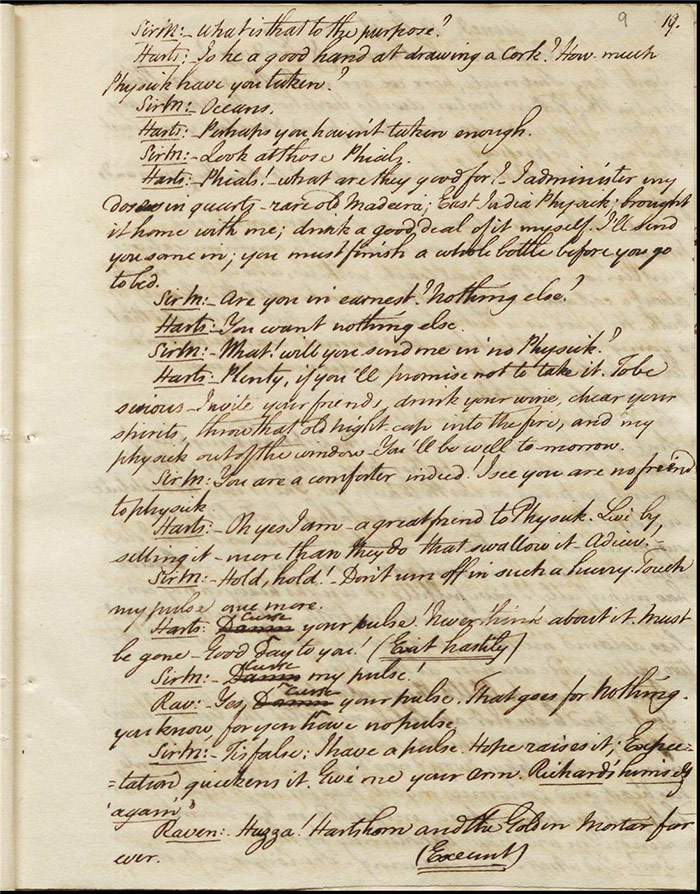 9 19.
Sir M:- what is that to the purpose?
Harts: Is he a good hand at drawing a Cork? How much
Physick have you taken?
Sir M:- Oceans.
Harts:- Perhaps you haven't taken enough.
Sir M:- Look at those Phials.
Harts: Phials! - what are they good for? - I administer my
Doses in quarts - rare old Madeira; East India Physick; brought
it home with me; drink a good deal of it myself. I'll send
you some in; you must finish a whole bottle before you go
to bed.
Sir M:- Are you in earnest? Nothing else?
Harts: You want nothing else.
Sir M:- What! will you send me in no Physick?
Harts: Plenty, if you'll promise not to take it. To be
serious - Invite your friends, drink your wine, chear your
spirits, throw that old night cap into the fire, and my
physick out of the window - You'll be well to-morrow.
Sir M: You are a comforter indeed! I see you are no friend
to physick.
Harts:- Oh yes I am - a great friend to Physick. Live by
selling it - more than they do that swallow it - Adieu! -
Sir M:- Hold, hold! - Don't turn off in such a hurry. Touch
my pulse once more.
Harts: Damn Curse your pulse! Never think about it. Must
be gone - Good Day to you! (Exit hastily)
Sir M:- Damn Curse my pulse!
Rav:- Yes, Damn Curse your pulse. That goes for Nothing.
you know, for you have no pulse.
Sir M:- Tis false: I have a pulse. Hope raises it; Expec=
=tation quickens it. Give me your arm. Richard's himself
'again'
Raven:- Huzza! Hartshorn and the Golden Mortar for
ever. (Exeunt)